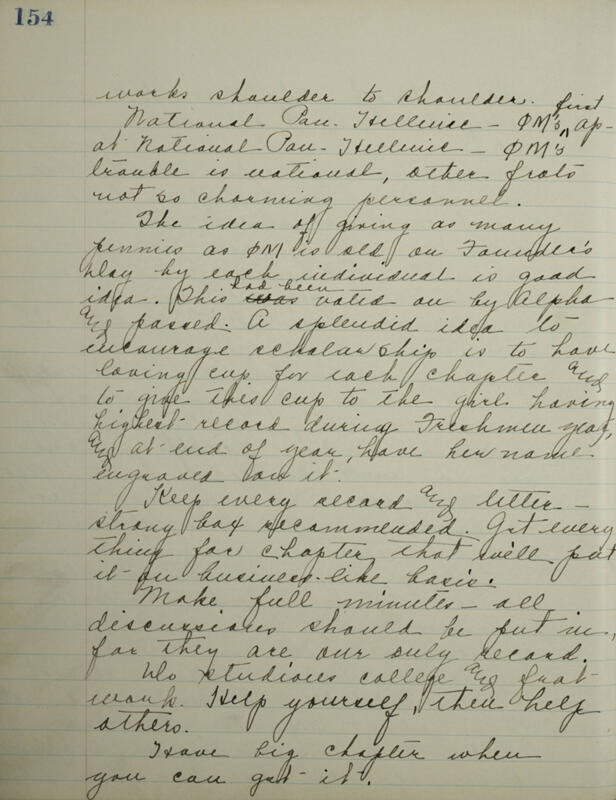 154
works shoulder to shoulder.
National Pan-Hellenic - ΦM's first ap-
at National Pan-Hellenic - ΦM's
trouble is national, other frats
not so charming personnel.
The idea of giving as many
pennies as ΦM is old on Founder's
Day by each individual is good
idea. This was had been voted on by Alpha
and passed. A splendid idea to
encourage scholarship is to have
loving cup for each chapter and
to give this cup to the girl having
highest record during Freshmen year,
and at end of year, have her name
engraved on it.
Keep every record and letter -
strong box recommended. Get every
thing for chapter that will put
it on business-like basis.
Make full minutes - all
discussions should be put in,
for they are our only record.
Do studious college and frat
work. Help yourself, then help
others.
Have big chapter when
you can get it.